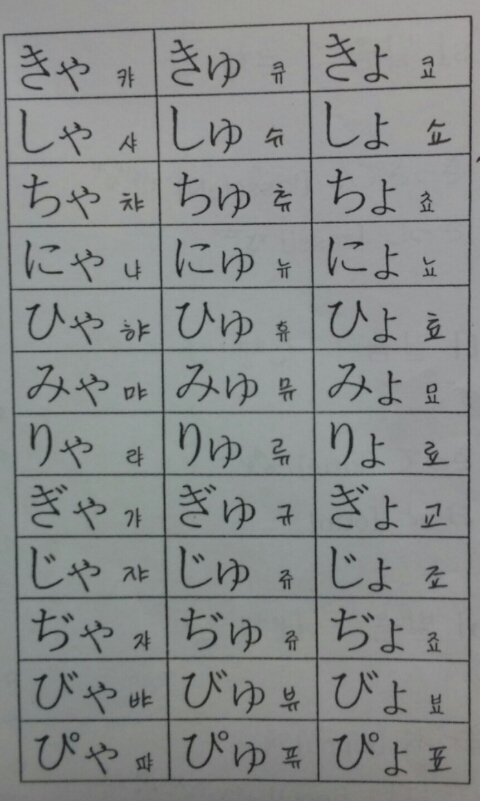 きゃ 캬 きゅ 큐 きょ 쿄
しゃ 샤 しゅ 슈 しょ 쇼
ちゃ 챠 ちゅ 츄 ちょ 쵸
にゃ 냐 にゅ 뉴 にょ 뇨
ひゃ 햐 ひゅ 휴 ひょ 효
みゃ 먀 みゅ 뮤 みょ 묘
りゃ 랴 りゅ 류 りょ 료
ぎゃ 갸 ぎゅ 규 ぎょ 교
じゃ 쟈 じゅ 쥬 じょ 죠
ぢゃ 쟈 ぢゅ 쥬 ぢょ 죠
びゃ 뱌 びゅ 뷰 びょ 뵤
ぴゃ 퍄 ぴゅ 퓨 ぴょ 표